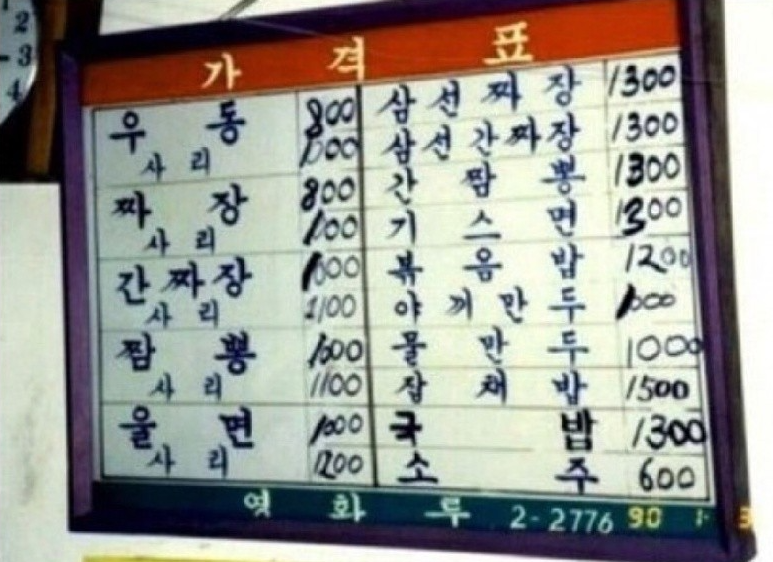 2
3
4
가 격 표
우 동 800
사 리 1000
짜 장 800
사 리 1100
간 짜 장 1000
사 리 1100
짬 뽕 1000
사 리 1100
울 면 1000
사 리 1200
삼 선 짜 장 1300
삼 선 간 짜 장 1300
간 짬 뽕 1300
기 스 면 1300
볶 음 밥 1200
야 끼 만 두 1000
물 만 두 1000
잡 채 밥 1500
국 밥 1300
소 주 600
영 화 루 2-2776
90 1. 3